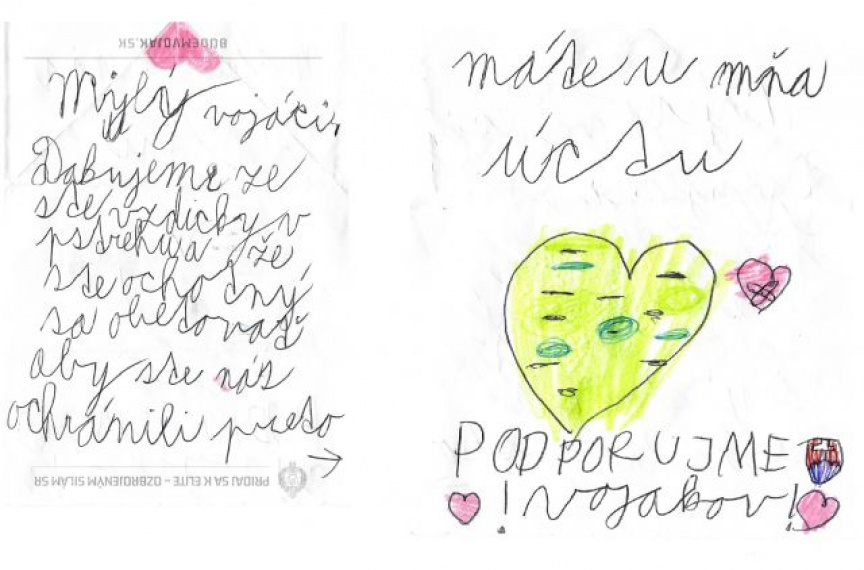 BUDEMVOJAK.SK
Milý vojáci,
Ďakujeme že
ste vždicky v
pstrehua že
ste ochotný
sa obetovať
aby ste nás
ochránili preto
PRIDAJ SA K ELITE – OZBROJENÝM SILÁM SR
máte u mňa
úctu
PODPORUJME
! vojakov !